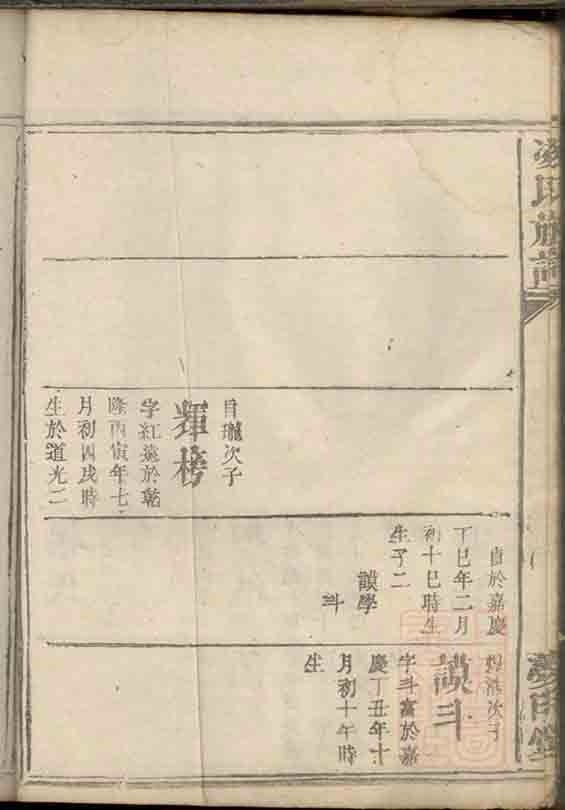 族譜
自瓏次子
輝榜
字紅遠於乾
隆丙寅年七
月初四戌時
生於道光二
自於嘉慶
丁巳年二月
初十巳時生
生子二
謨學
斗
輝浩次子
謨斗
字斗富於嘉
慶丁丑年十
月初十午時
生